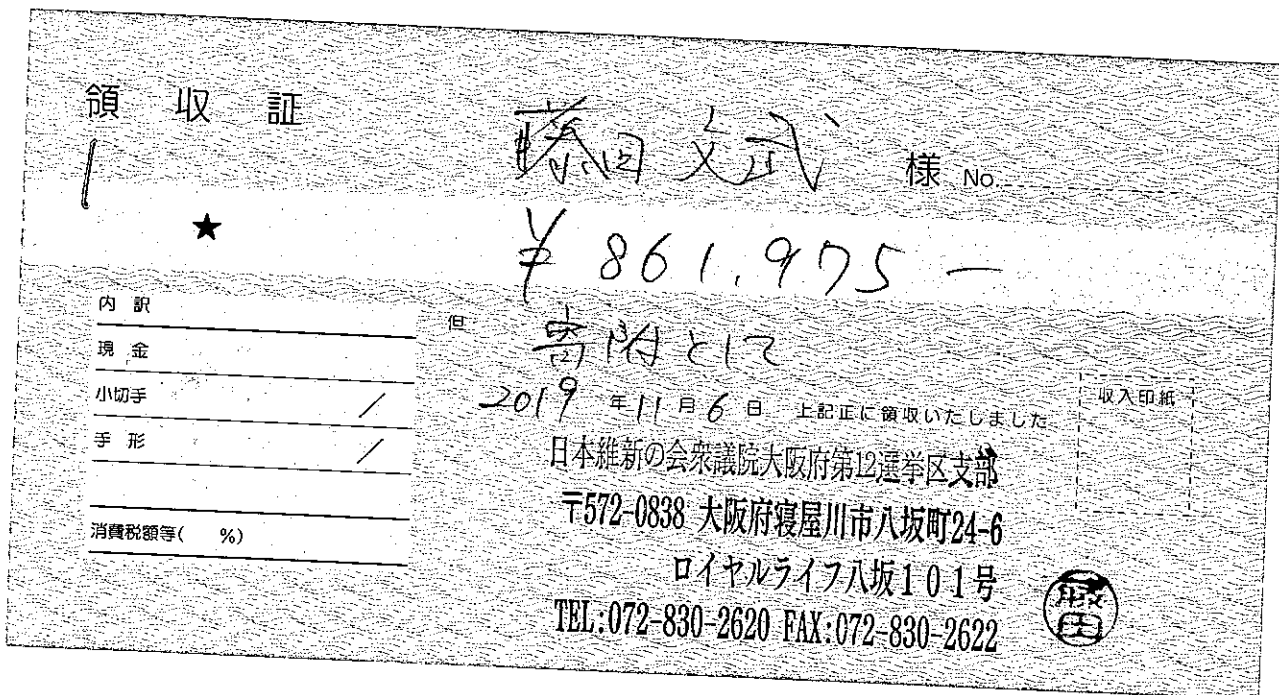 領収証
藤田文武 様 No.
★
¥861,975—
内訳
現金
小切手 /
手形 /
消費税額等( %)
但 寄附として
2019年11月6日 上記正に領収いたしました
収入印紙
日本維新の会衆議院大阪府第12選挙区支部
〒572-0838 大阪府寝屋川市八坂町24-6
ロイヤルライフ八坂101号
TEL:072-830-2620 FAX:072-830-2622